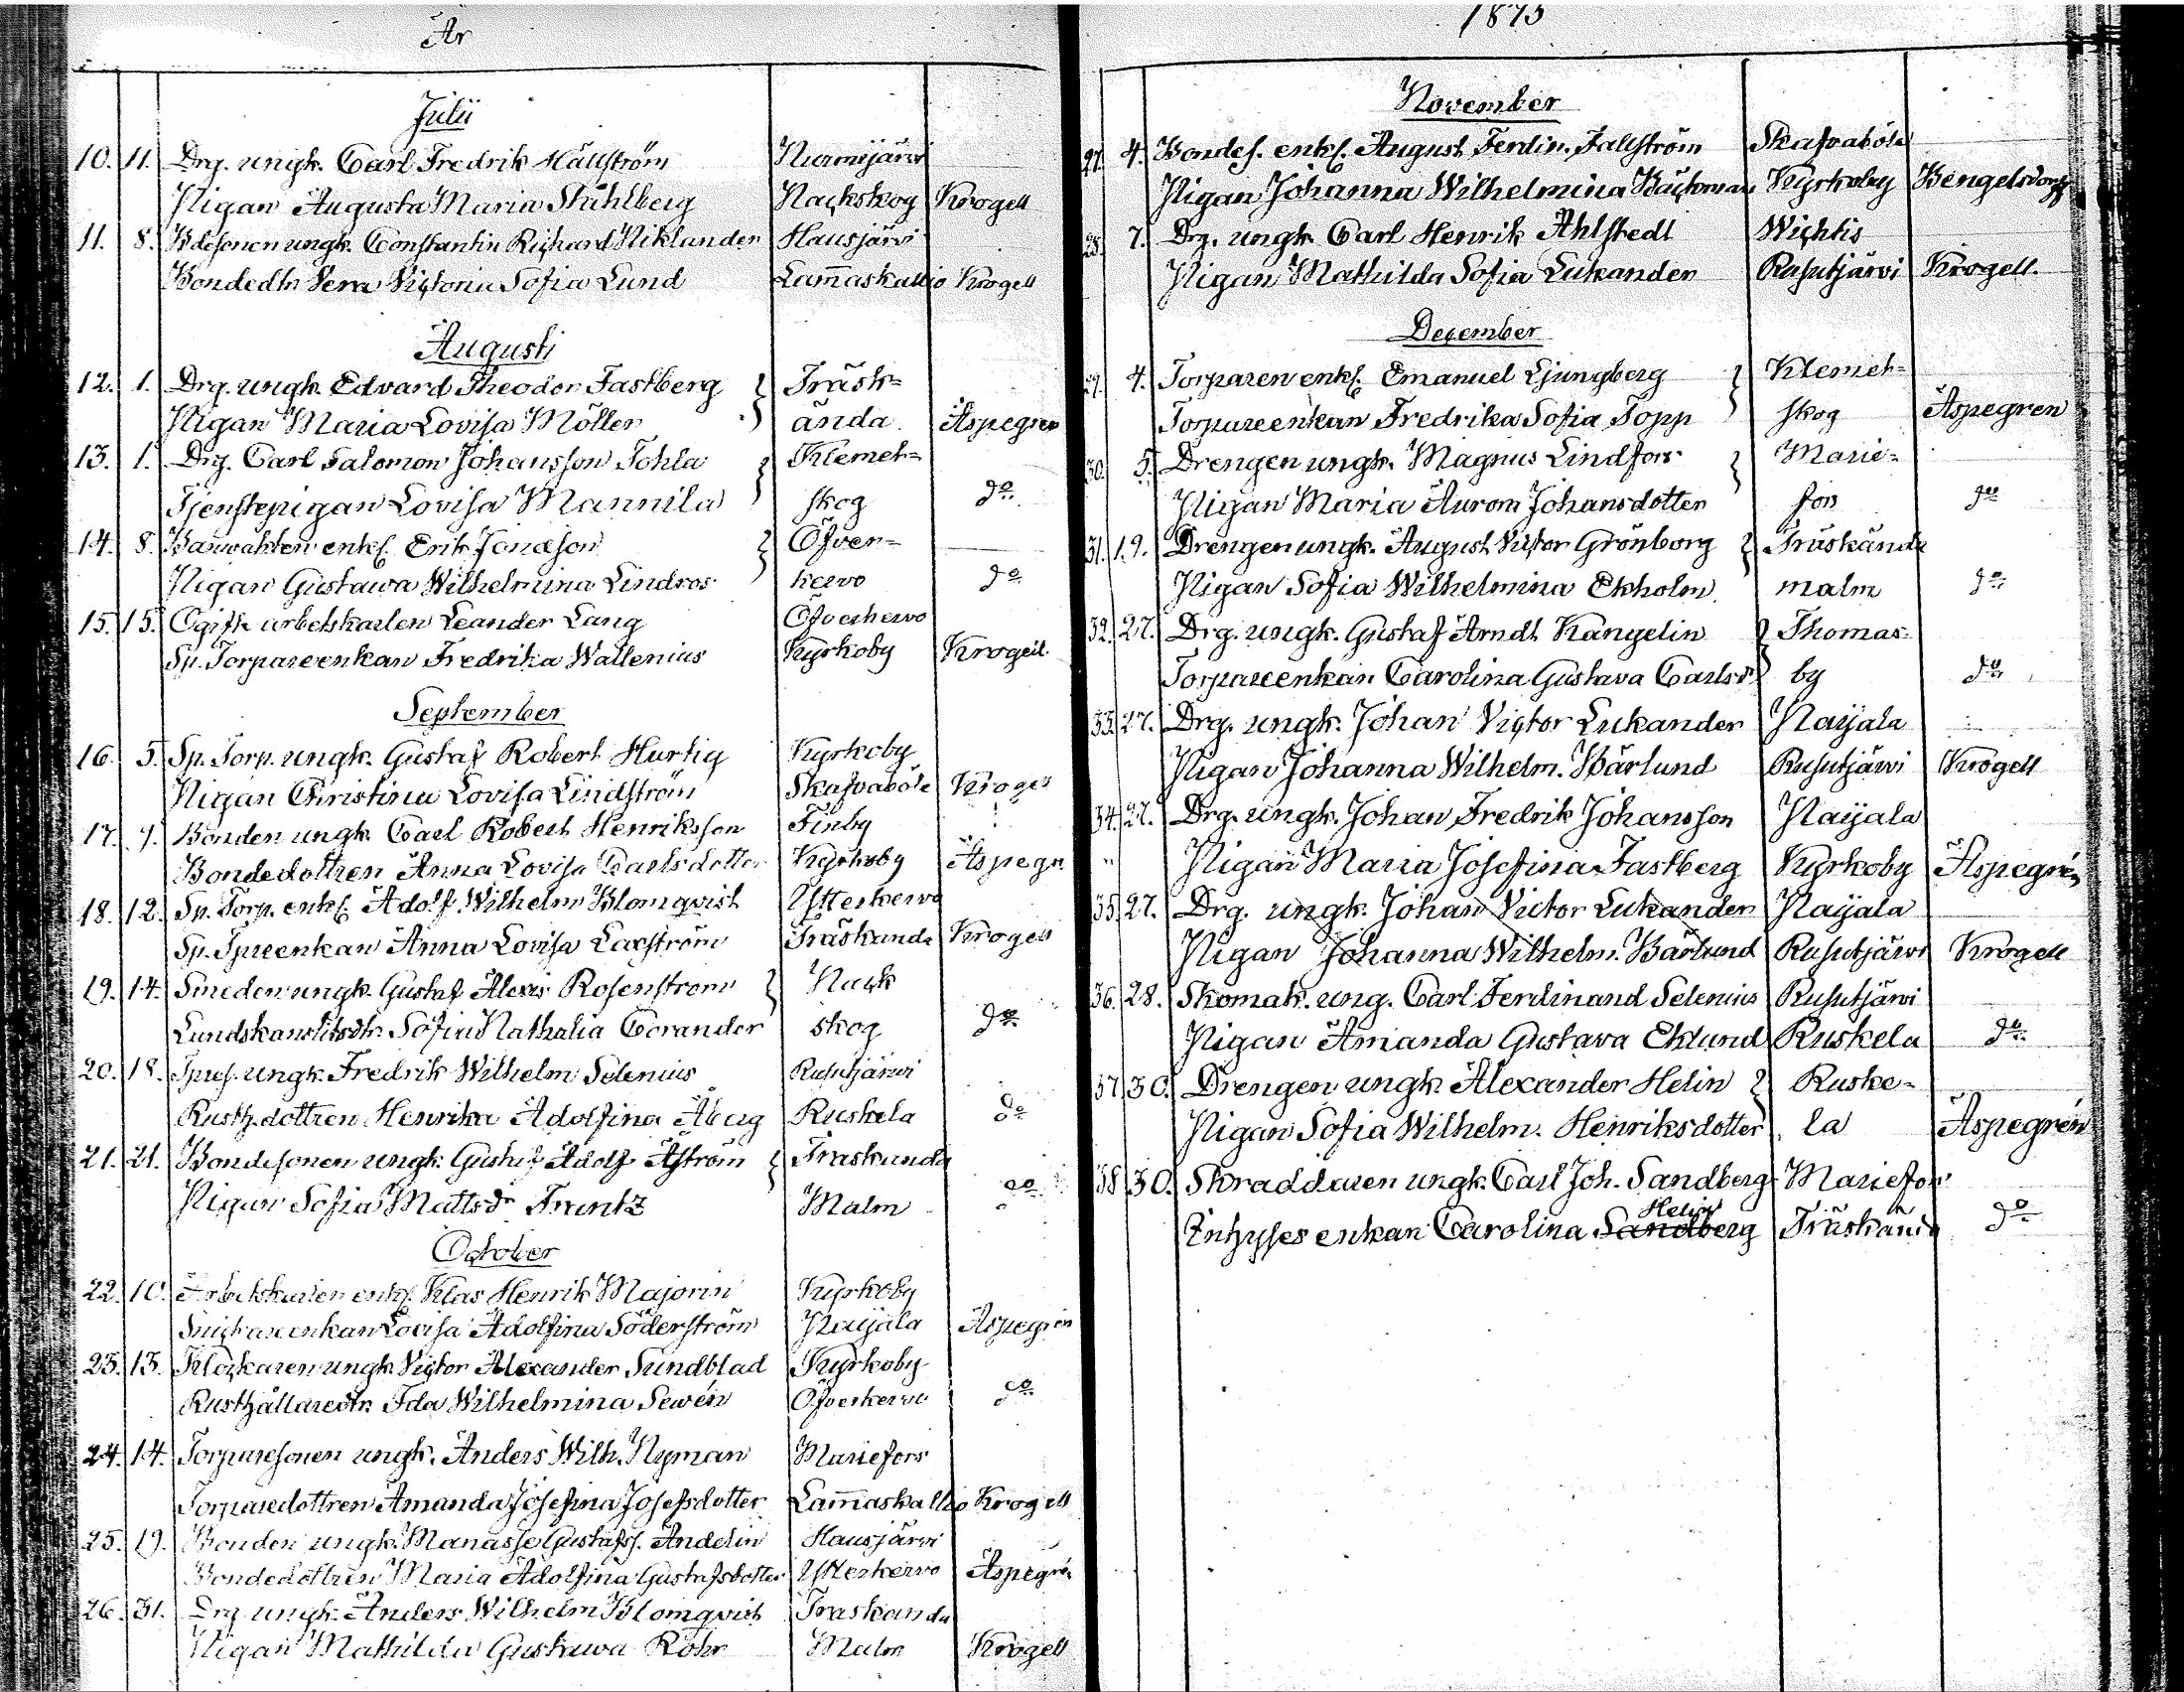 År
Julii
10. 11. Drg. ungk. Carl Fredrik Hällström Nurmijärvi
Pigan Augusta Maria Ståhlberg Nackskog Krogell
11. 8. Bdesonen ungk. Constantin Richard Niklander Hausjärvi
Bondedtr Vera Victoria Sofia Lund Lam̄askallio Krogell
Augusti
12. 1. Drg. ungk. Edvard Theodor Fastberg Träsk=
Pigan Maria Lovisa Möller ända Aspegren
13. 1. Drg. Carl Salomon Johansson Tohla Klemet=
Tjenstepigan Lovisa Mannila skog do
14. 8. Banvakten enkl. Erik Jonasson Öfver=
Pigan Gustawa Wilhelmina Lindros kervo do
15. 15. Ogifte arbetskarlen Leander Lang Öfverkervo
Sp. Torpareenkan Fredrika Wallenius Kyrkoby Krogell
September
16. 5. Sp. Torp. ungk. Gustaf Robert Hurtig Kyrkoby
Pigan Christina Lovisa Lindström Skafvaböle Krogell
17. 7. Bonden ungk. Carl Robert Henriksson Finby
Bondedottren Anna Lovisa Carlsdotter Kyrkoby Aspegr.
18. 12. Sp. Torp. enkl. Adolf Wilhelm Blomqvist Ytterkervo
Sp. Tpreenkan Anna Lovisa Laxström Träskända Krogell
19. 14. Smeden ungk. Gustaf Alexis Rosenström Nack
Sofia Nathalia Corander skog do
20. 18. Tpres. ungk. Fredrik Wilhelm Selenius Rusutjärvi
Rusth.dottren Henrika Adolfina Åberg Ruskela do
21. 21. Bondesonen ungk. Gustaf Adolf Åström Träskända
Pigan Sofia Mattsdr Frantz Malm do
October
22. 10. Arbetskarlen enkl. Klas Henrik Majorin Kyrkoby
Lovisa Adolfina Söderström Paijala Aspegrén
23. 13. Klockaren ungk. Victor Alexander Sundblad Kyrkoby
Rusthållaredtr. Ida Wilhelmina Sevén Öfverkervo do
24. 14. Torparesonen ungk. Anders Wilh. Nyman Mariefors
Torparedottren Amanda Josefina Josefsdotter Lam̄askallio Krogell
25. 19. Bonden ungk. Manasse Gustafss. Andelin Hausjärvi
Bondedottren Maria Adolfina Gustafsdotter Ytterkervo Aspegrén
26. 31. Drg. ungk. Anders Wilhelm Blomqvist Träskända
Pigan Mathilda Gustawa Röhr Malm Krogell
1875
November
27. 4. Bondes. enkl. August Ferdin. Fallström Skafvaböle
Pigan Johanna Wilhelmina Bäckman Kyrkoby Bengelsdorff
28. 7. Drg. ungk. Carl Henrik Ahlstedt Wichtis
Pigan Mathilda Sofia Lukander Rusutjärvi Krogell.
December
29. 4. Torparen enkl. Emanuel Ljungberg Klemet=
Torpareenkan Fredrika Sofia Topp skog Aspegren
30. 5. Drengen ungk. Magnus Lindfors Marie=
Pigan Maria Aurora Johansdotter fors do
31. 19. Drengen ungk. August Victor Grönborg Träskända
Pigan Sofia Wilhelmina Ekholm malm do
32. 27. Drg. ungk. Gustaf Arndt Kangelin Thomas=
Torpareenkan Carolina Gustava Carlsdr by do
33. 27. Drg. ungk. Johan Victor Lukander Paijala
Pigan Johanna Wilhelm. Bärlund Rusutjärvi Krogell
34. 27. Drg. ungk. Johan Fredrik Johansson Paijala
" Pigan Maria Josefina Fastberg Kyrkoby Aspegrén
35. 27. Drg. ungk. Johan Victor Lukander Paijala
Pigan Johanna Wilhelm. Bärlund Rusutjärvi Krogell
36. 28. Skomak. ung. Carl Ferdinand Selenius Rusutjärvi
Pigan Amanda Gustava Eklund Ruskela do
37. 30. Drengen ungk. Alexander Helin Ruske=
Pigan Sofia Wilhelm. Henriksdotter la Aspegrén
38. 30. Skraddaren ungk. Carl Joh. Sandberg Mariefors
Helin
Inhyses enkan Carolina Sandberg Träskända do